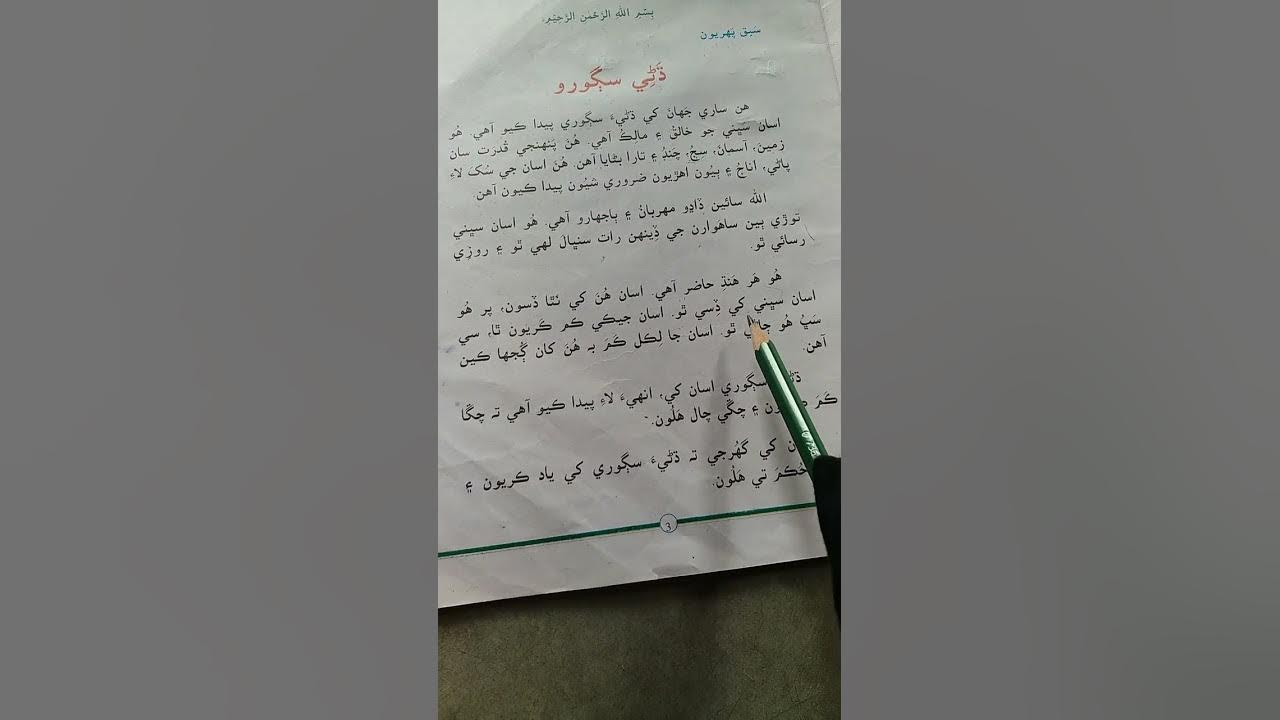 بِسْمِ اللهِ الرَّحْمٰنِ الرَّحِيْمِ
سَبق پَهريون
ڌَڻِي سڳورو
هن ساري جَهانَ کي ڌڻيءَ سڳوري پيدا ڪيو آهي. هُو
اسان سڀني جو خالقُ ۽ مالِڪُ آهي. هُن پَنهنجي قُدرَت سان
زمين، آسمانُ، سِجُ، چَنڊُ ۽ تارا بڻايا آهن. هُنَ اسان جي سُکَ لاءِ
پاڻي، اناجُ ۽ ٻيُون اهڙيون ضروري شيُون پيدا ڪيون آهن.
الله سائين ڏاڍو مهربانُ ۽ ٻاجهارو آهي. هُو اسان سڀني
توڙي ٻين ساهوارن جي ڏِينهن رات سنڀالَ لهي ٿو ۽ روزي
رسائي ٿو.
هُو هَر هَنڌِ حاضر آهي. اسان هُنَ کي نٿا ڏسون، پر هُو
اسان سڀني کي ڏِسي ٿو. اسان جيڪي ڪم ڪَريون ٿا، سي
سَڀُ هُو ٿو. اسان جا لِڪل ڪَمَ بہ هُنَ کان ڳُجها ڪين
آهن.
سڳوري اسان کي، انهيءَ لاءِ پيدا ڪيو آهي تہ چڱا
ڪَمَ ۽ چڱي چال هَلُون.
کي گهُرجي تہ ڌڻيءَ سڳوري کي ياد ڪريون ۽
حُڪمَ تي هَلُون.
3